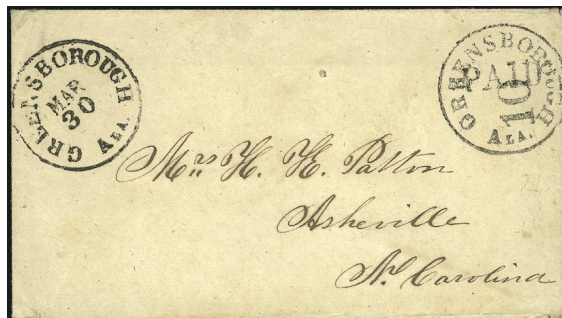 GREENSBOROUGH ALA.
MAR
30
GREENSBOROUGH ALA.
PAID
10
Mrs. H. H. Patton
Asheville
No. Carolina